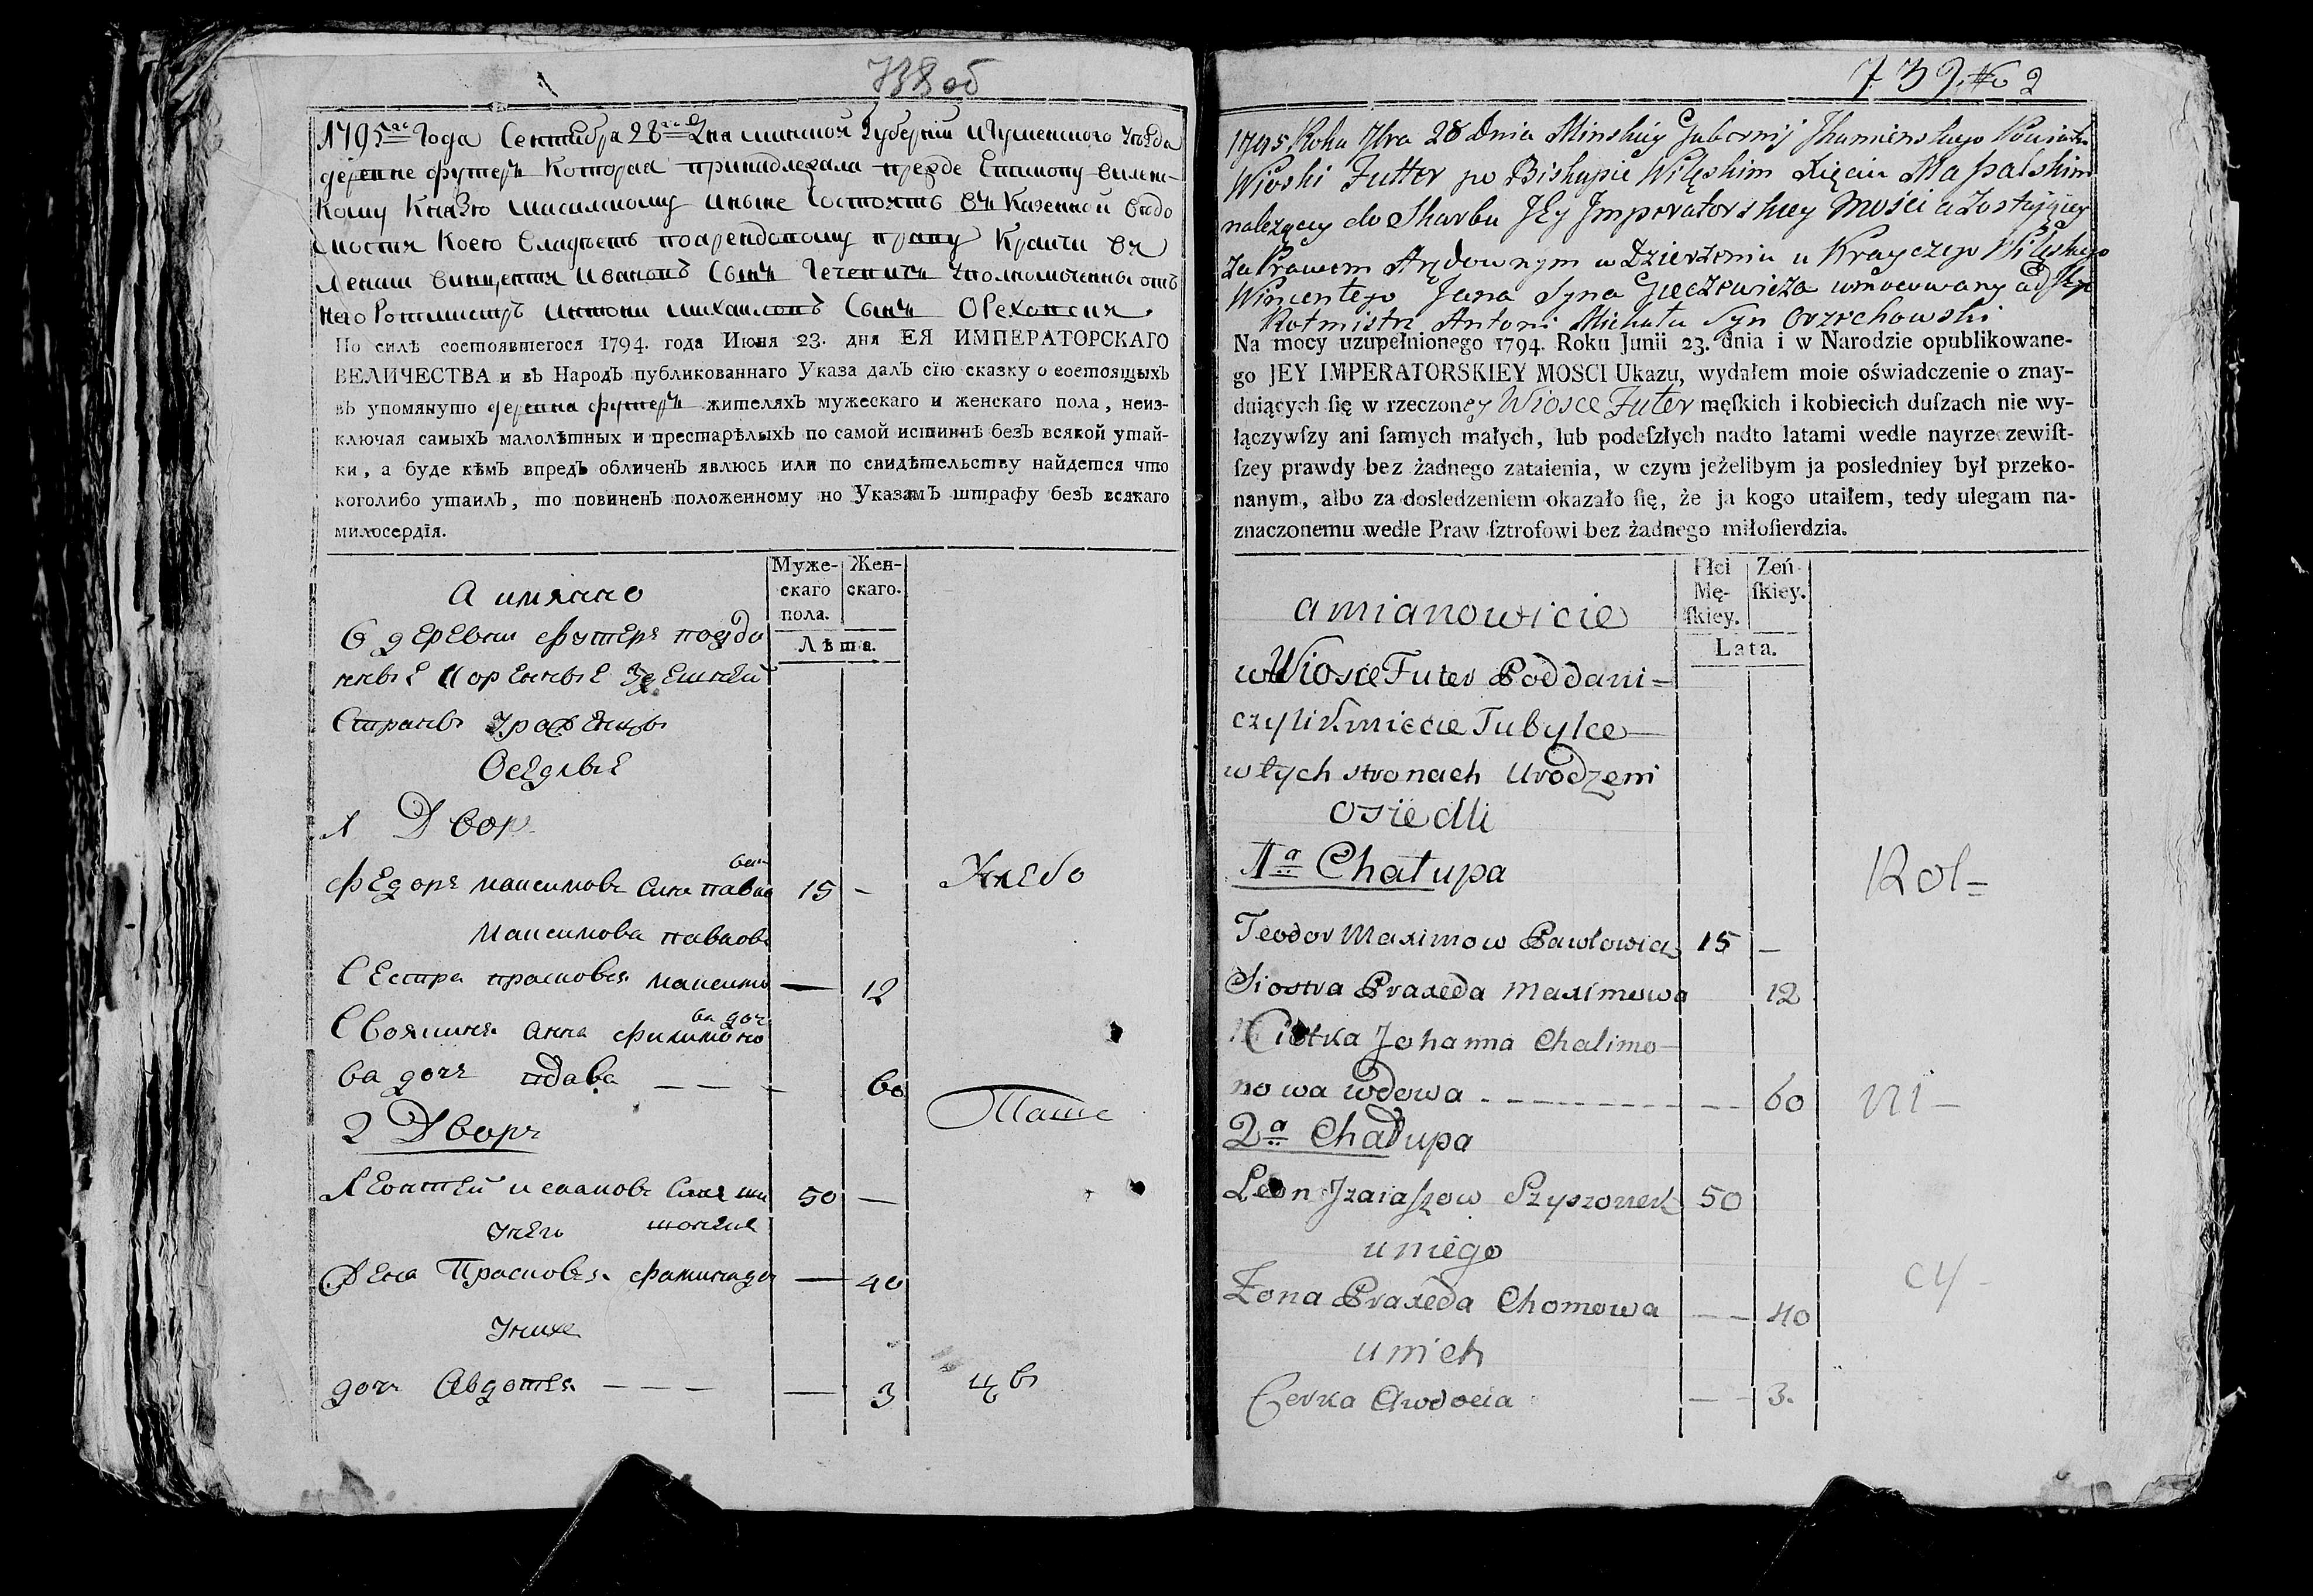 738 об
1795го Года Сентября 28го Дня минской Губернии Игуменского уезда
деревне футеръ Которая принадлежала прежде Епископу вилен-
кому Князю масалскому иныне Состоитъ въ Казенном ведо
мостия Коего владѣетъ поарендовному праву Крайчи ви
ленски винцентия Ивановъ Сынъ Гечевичъ уполномоченны отъ
него Ротмистръ Антони михаиловъ Сынъ Ореховски
По силѣ состоявшегося 1794. года Июня 23. дня ЕЯ ИМПЕРАТОРСКАГО
ВЕЛИЧЕСТВА и въ Народъ публикованнаго Указа далъ сїю сказку о состоящыхъ
въ упомянуто деревна футеръ жителяхъ мужескаго и женскаго пола, неиз-
ключая самыхъ малолѣтныхъ и престарѣлыхъ по самой истиннѣ безъ всякой утай-
ки, а буде кѣмъ впредъ обличенъ явлюсь или по свидѣтельству найдется что
коголибо утаилъ, то повиненъ положенному по Указамъ штрафу безъ всякаго
милосердїя.
Муже-
скаго
пола.
Жен-
скаго.
Лѣта.
А имянно
в деревни футеръ подда
нные Коренные здешней
Страны урожденцы
Оседлые
1 Двор
Федоръ максимовъ Синъ павло 15 —
вич
Хлебо
Максимова павлов
Сестра прасковья максимо — 12
ва доч
Своячиня анна филимоно
ва дочъ вдова — — — 60
Паше
2 Дворъ
Леонтей исааковъ Синъ ши 50 —
шонекъ
унего
Жена Прасковья фомина до — 40
уних
доч Авдотья — — — — 3
цы
739. № 2
1795 Roku 7bra 28 Dnia Minskiey Gubernij Jhumienskiego Powiatu
Wioski Futter po Biskupie Wilęskim Xięciu Massalskim
należący do Skarbu JEy Jmperatorskiey Mości a Zostaiącey
za Prawem Arędownym w Dzierżeniu u Krayczego Wilęskiego
Wincentego Jana Syna Gieczewicza umocowany od Jego
Rotmistrz Antoni Michała Syn Orzechowski
Na mocy uzupełnionego 1794. Roku Junii 23. dnia i w Narodzie opublikowane-
go JEY IMPERATORSKIEY MOSCI Ukazu, wydałem moie oświadczenie o znay-
duiących ſię w rzeczoney Wiosce Futer męſkich i kobiecich duſzach nie wy-
łączywſzy ani ſamych małych, lub podeſzłych nadto latami wedle nayrzeczewiſt-
ſzey prawdy bez żadnego zataienia, w czym jeżelibym ja posledniey był przeko-
nanym, albo za dosledzeniem okazało ſię, że ja kogo utaiłem, tedy ulegam na-
znaczonemu wedle Praw ſztrofowi bez żadnego miłoſierdzia.
Płci
Mę-
ſkiey.
Zeń-
ſkiey.
Lata.
amianowicie
w Wiosce Futer Poddani=
czyli Kmiecie Tubylce—
w tych stronach Urodzeni
osiedli
1a Chałupa
Rol=
Teodor Maximow Pawłowicz 15 —
Siostra Praxeda Maximowa 12
Ciotka Johanna Chalimo—
nowa wdowa - - - - - 60
ni—
2a Chałupa
Leon Jzaiaszow Szyszonek 50
uniego
Zona Praxeda Chomowa — — 40
cy-
unich
Cerka Awdocia — — 3.